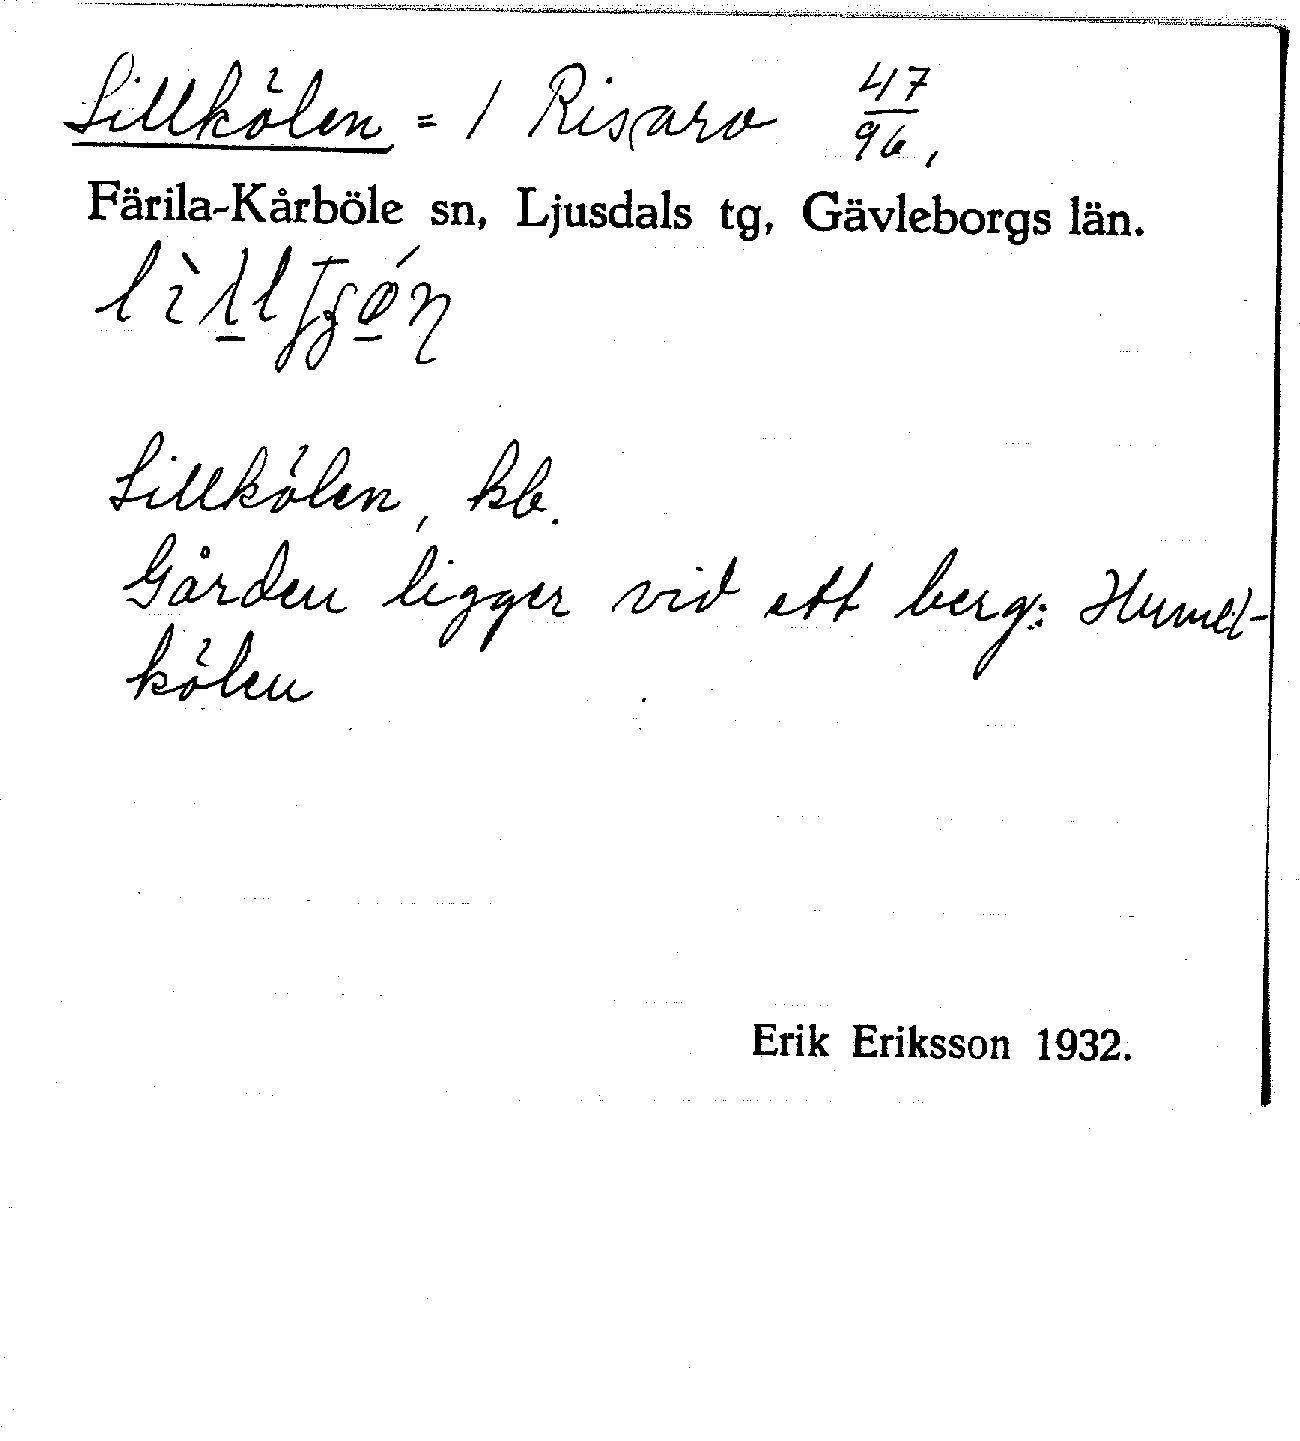 Lillkölen = 1 Risarv 47/96,
Färila-Kårböle sn, Ljusdals tg, Gävleborgs län.
Lillkölen, kb.
Gården ligger vid ett berg: Humel-
kölen
Erik Eriksson 1932.